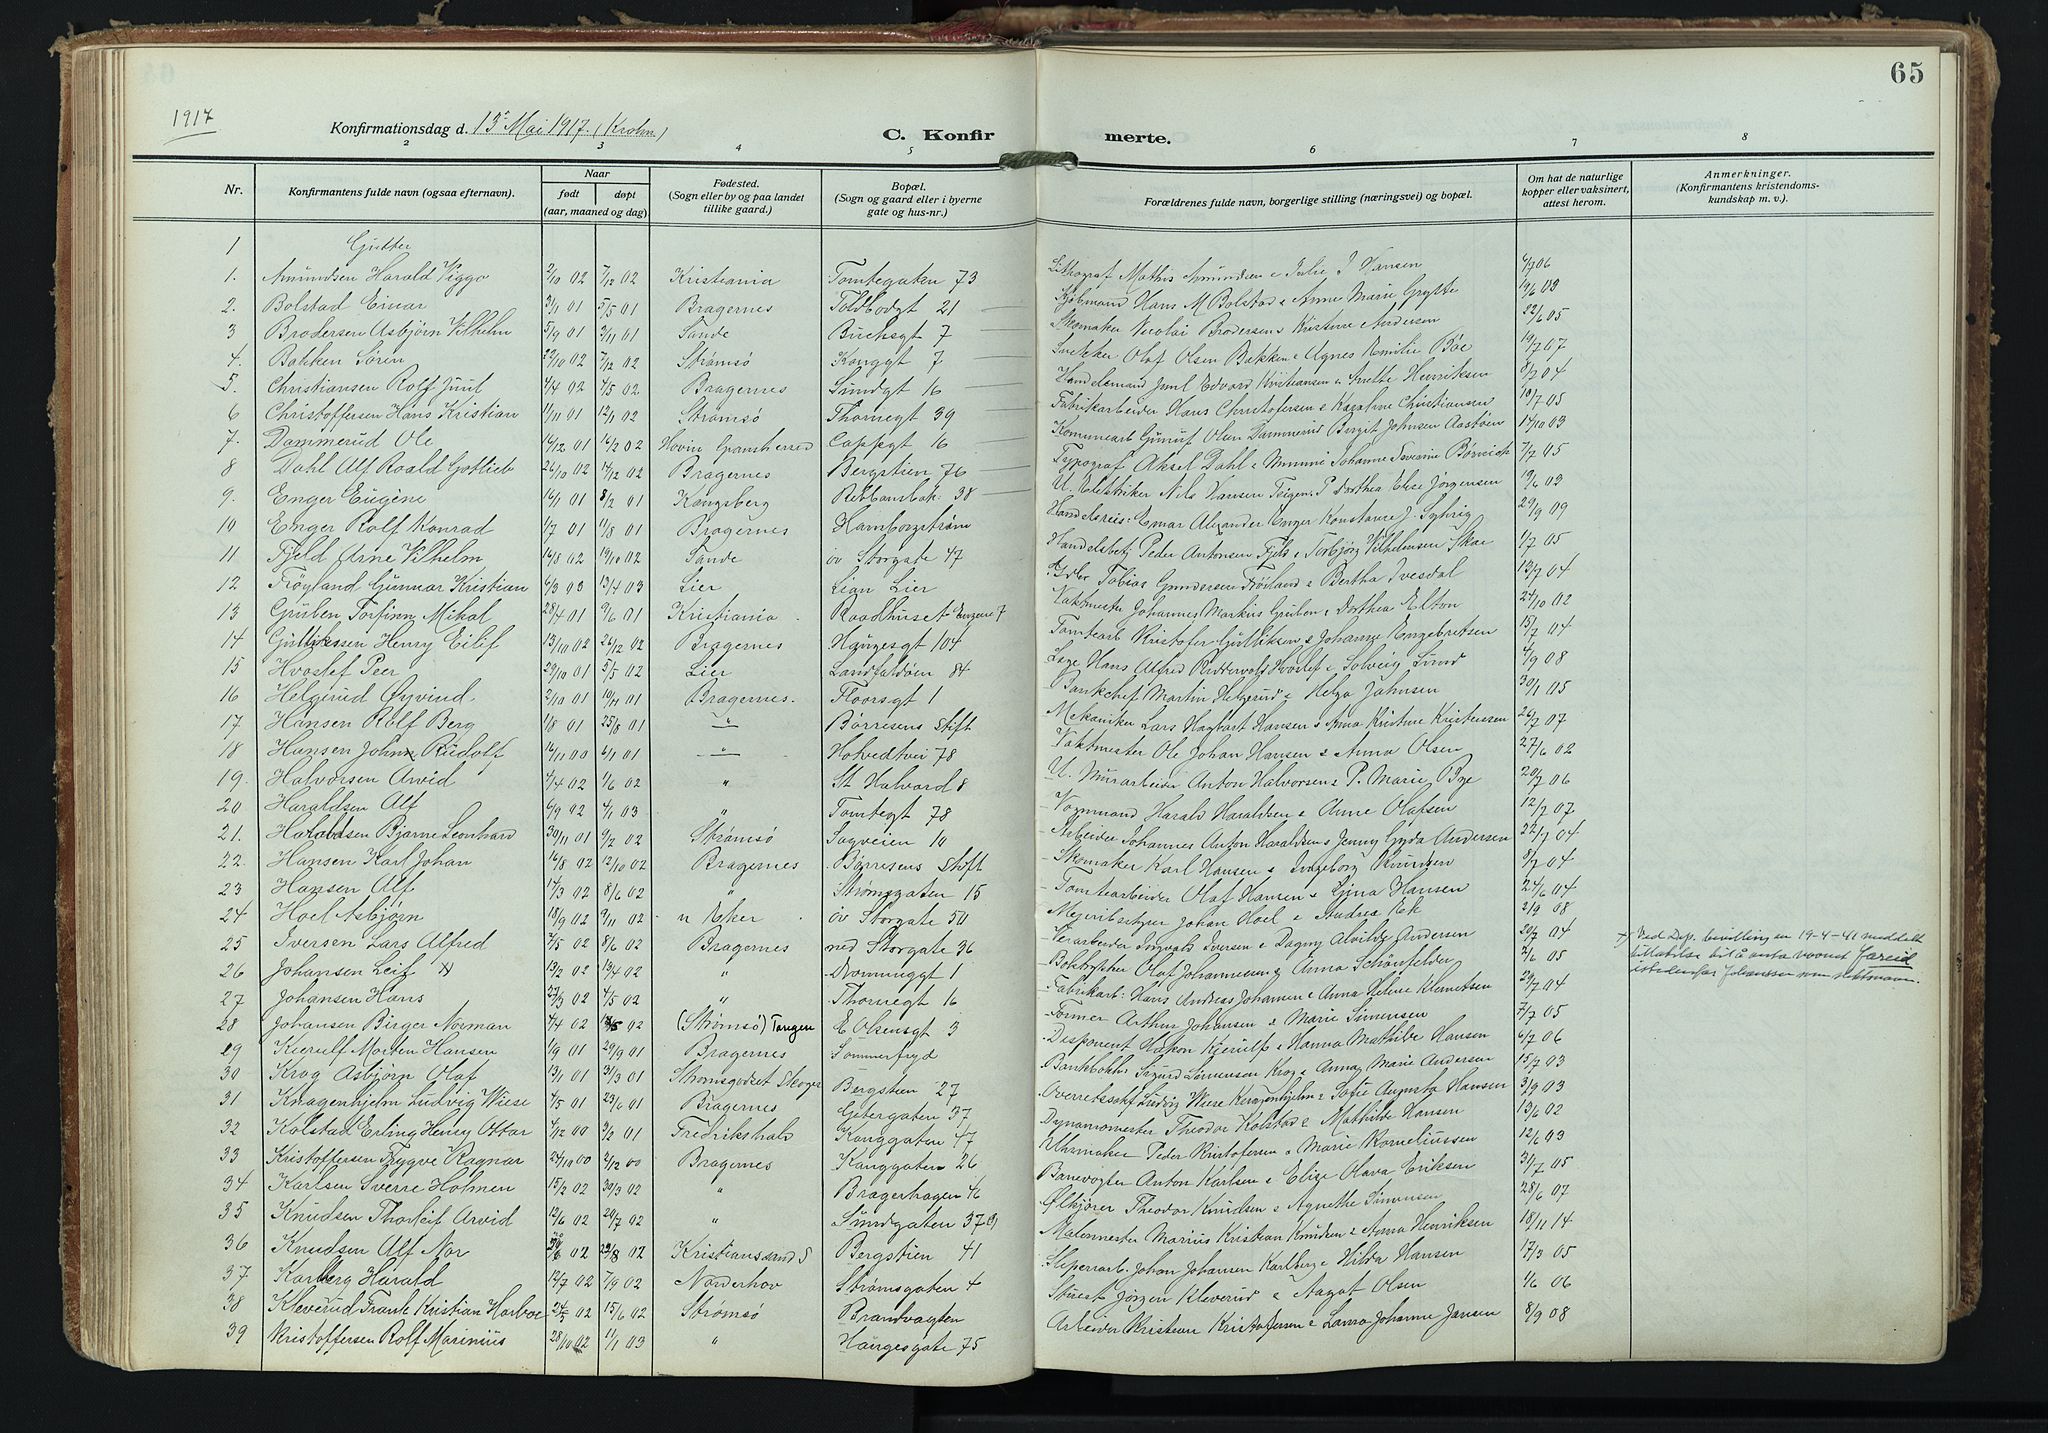 65
1917
Konfirmationsdag d. 13 Mai 1917. (Krohn)
C. Konfirmerte.
2 3 4 5 6 7 8
Nr. Konfirmantens fulde navn (ogsaa efternavn). Naar født døpt (aar, maaned og dag) Fødested. (Sogn eller by og paa landet tillike gaard.) Bopæl. (Sogn og gaard eller i byerne gate og hus-nr.) Forældrenes fulde navn, borgerlige stilling (næringsvei) og bopæl. Om hat de naturlige kopper eller vaksinert, attest herom. Anmerkninger. (Konfirmantens kristendomskundskap m. v.).
1 Gutter
1. Amundsen Harald Viggo 2/10 02 7/12 02 Kristiania Tomtegaten 73 Lithograf Mathis Amundsen & Julie J Hansen 4/7 06
2. Bolstad Einar 31/1 01 5/5 01 Bragernes Toldbodgt 21 Kjøbmand Hans M Bolstad & Anne Marie Grytte 19/6 03
3 Brodersen Asbjørn Vilhelm 5/9 01 3/11 01 Sande Buchsgt 7 Skomaker Nicolai Brodersen & Kristine Andersen 22/6 05
4. Bakken Søren 22/10 02 7/12 02 Strømsø Konggt 7 Snekker Olaf Olsen Bakken & Agnes Emilie Bøe 19/7 07
5. Christiansen Rolf Juul 4/4 02 4/5 02 Bragernes Sundgt 16 Handelsmand Juul Edvard Kristiansen & Anette Henriksen 8/7 04
6 Christoffersen Hans Kristian 11/11 01 12/1 02 Strømsø Thornegt 39 Fabrikarbeider Hans Christofersen & Karoline Christiansen 10/7 05
7. Dammerud Ole 16/12 01 16/2 02 Hovin Gransherred Cappgt 16 Kommunearb Gunuf Olsen Dammerud Birgit Johnsen Aastøen 14/10 03
8 Dahl Alf Roald Gotlieb 26/10 02 14/12 02 Bragernes Bergstien 76 Typograf Aksel Dahl & Minni Johanne Severine Børnich 7/7 05
9. Enger Eugène 16/1 01 8/2 01 Kongsberg Rebbansbak. 38 U. Elektriker Nils Hansen Teigen P. Dorthea Elise Jørgensen 19/6 03
10 Enger Rolf Konrad 1/7 01 11/8 01 Bragernes Hamborgstrøm Handelsreis: Einar Alexander Enger Konstance J. Syhrig 29/9 09
11 Fjeld Arne Vilhelm 16/8 02 19/10 02 Sande øv Storgate 47 Handelsbetj Peder Antonsen Fjeld & Torbjørg Vilhelmsen Skae 1/7 05
12 Frøyland Gunnar Kristian 6/3 03 13/4 03 Lier Lian Lier Tobias Gundersen Frøiland & Bertha Ivesdal 13/7 04
13 Gruben Torfinn Mikal 28/4 01 9/6 01 Kristiania Raadhuset Engene 7 Vaktmester Johannes Markus Gruben & Dorthea Elton 24/10 02
14 Gulliksen Henry Eilif 13/10 02 26/12 02 Bragernes Haugesgt 104 Tomtearb Kristofer Gulliksen & Johanne Engebretsen 15/7 04
15 Hvoslef Peer 29/10 01 5/5 02 Lier Landfaldøen 84 Læge Hans Alfred Ridderwold Hvoslef & Solveig Lund 4/9 08
16 Helgerud Øyvind 2/10 01 10/11 01 Bragernes. Floorsgt 1 Bankchef Martin Helgerud & Helga Johnsen 30/1 05
17 Hansen Rolf Berg 1/8 01 25/8 01 " Børresens Stift Mekaniker Lars Hagbart Hansen & Anna Kristine Kristensen 26/7 07
18 Hansen Johan Rudolf 16/11 00 6/1 01 " Hotvedtvei 78 Vaktmester Ole Johan Hansen & Anna Olsen 27/6 02
19. Halvorsen Arvid 4/4 02 1/6 02 " St Halvard 8 U. Murarbeider Anton Halvorsen & P. Marie Bye 20/7 06
20 Haraldsen Alf 6/9 02 4/1 03 " Tomtegt 78 Vognmand Harald Haraldsen & Anne Olafsen 12/7 07
21. Haraldsen Bjarne Leonhard 30/11 01 9/2 02 Strømsø Sagveien 10 Arbeider Johannes Anton Haraldsen & Jenny Gyda Andersen 22/7 04
22. Hansen Karl Johan 16/8 02 12/10 02 Bragernes Børresens Stift Skomaker Karl Hansen & Ingeborg Knudsen 8/7 04
23 Hansen Alf 14/3 02 8/6 02 " Strømsgaten 15 Tomtearbeider Olaf Hansen & Signa Hansen 24/6 04
24 Hoel Asbjørn 18/9 02 9/11 02 n Eker øv Storgate 50 Meieribestyrer Johan Hoel & Andrea Ek 2/9 08
25 Iversen Lars Alfred 7/5 02 8/6 02 Bragernes ned Storgate 36 Veiarbeider Ingvald Iversen & Dagny Alvilde Andersen 20/7 04
26 Johansen Leif x 13/2 02 13/4 02 " Dronninggt 1 Boktrykker Olaf Johannesen & Anna Schönfelder 2/6 05 x Ved Dep. bevilling en 19-4-41 meddelt tillatelse til å anta navnet Fareid istedenfor Johansen som slektsnavn.
27 Johansen Hans 27/3 02 4/5 02 " Thornegt 16 Fabrikarb: Hans Andreas Johansen & Anna Helene Klemetsen 29/7 04
28 Johansen Birger Norman 4/4 02 02 (Strømsø) Tangen E Olsensgt 3 Former Arthur Johansen & Marie Simensen 7/7 05
29 Kierulf Morten Hansen 1/9 01 29/9 01 Bragernes Sommerfryd Disponent Hakon Kjerulf & Hanna Mathilde Hansen 6/7 06
30 Krog Asbjørn Olaf 13/1 01 31/3 01 Strømsgodset Skoger Bergstien 27 Bankbokh: Sigurd Simensen Krog & Anna Marie Andersen 15/7 03
31 Kragenhjelm Ludvig Wiese 4/5 01 23/6 01 Bragernes Gétergaten 37 Overretssakf Ludvig Wiese Kragenhjelm & Sofie Augusta Hansen 3/9 03
32 Kolstad Erling Henry Ottar 4/12 00 3/2 01 Fredrikshald Konggaten 47 Dynamomester Theodor Kolstad & Mathilde Hansen 13/6 02
33 Kristoffersen Trygve Ragnar 24/10 00 2/12 00 Bragernes Konggaten 26 Uhrmaker Peder Kristofersen & Marie Korneliussen 12/6 03
34 Karlsen Sverre Holmen 15/2 02 30/3 02 " Bragerhagen 46 Banevogter Anton Karlsen & Elise Olava Eriksen 31/7 05
35 Knudsen Thorleif Arvid 12/6 02 20/7 02 " Sundgaten 37 Ølkjører Theodor Knudsen & Agnethe Simensen 28/6 07
36 Knudsen Alf Nor 02 23/8 02 Kristianssand S Bergstien 41 Malermester Marius Kristian Knudsen & Anna Henriksen 18/11 14
37 Karlberg Harald 12/7 02 7/9 02 Norderhov Strømsgaten 4 Sliperarb. Johan Johansen Karlberg & Hilda Hansen 17/3 05
38 Kleverud Frank Kristian Harboe 24/5 02 15/6 02 Strømsø Brandvagten Stuert Jørgen Kleverud & Aagot Olsen 4/6 06
39 Kristoffersen Rolf Marinius 28/10 02 11/1 03 " Haugesgate 75 Arbeider Kristian Kristofersen & Laura Johanne Jansen 8/9 08